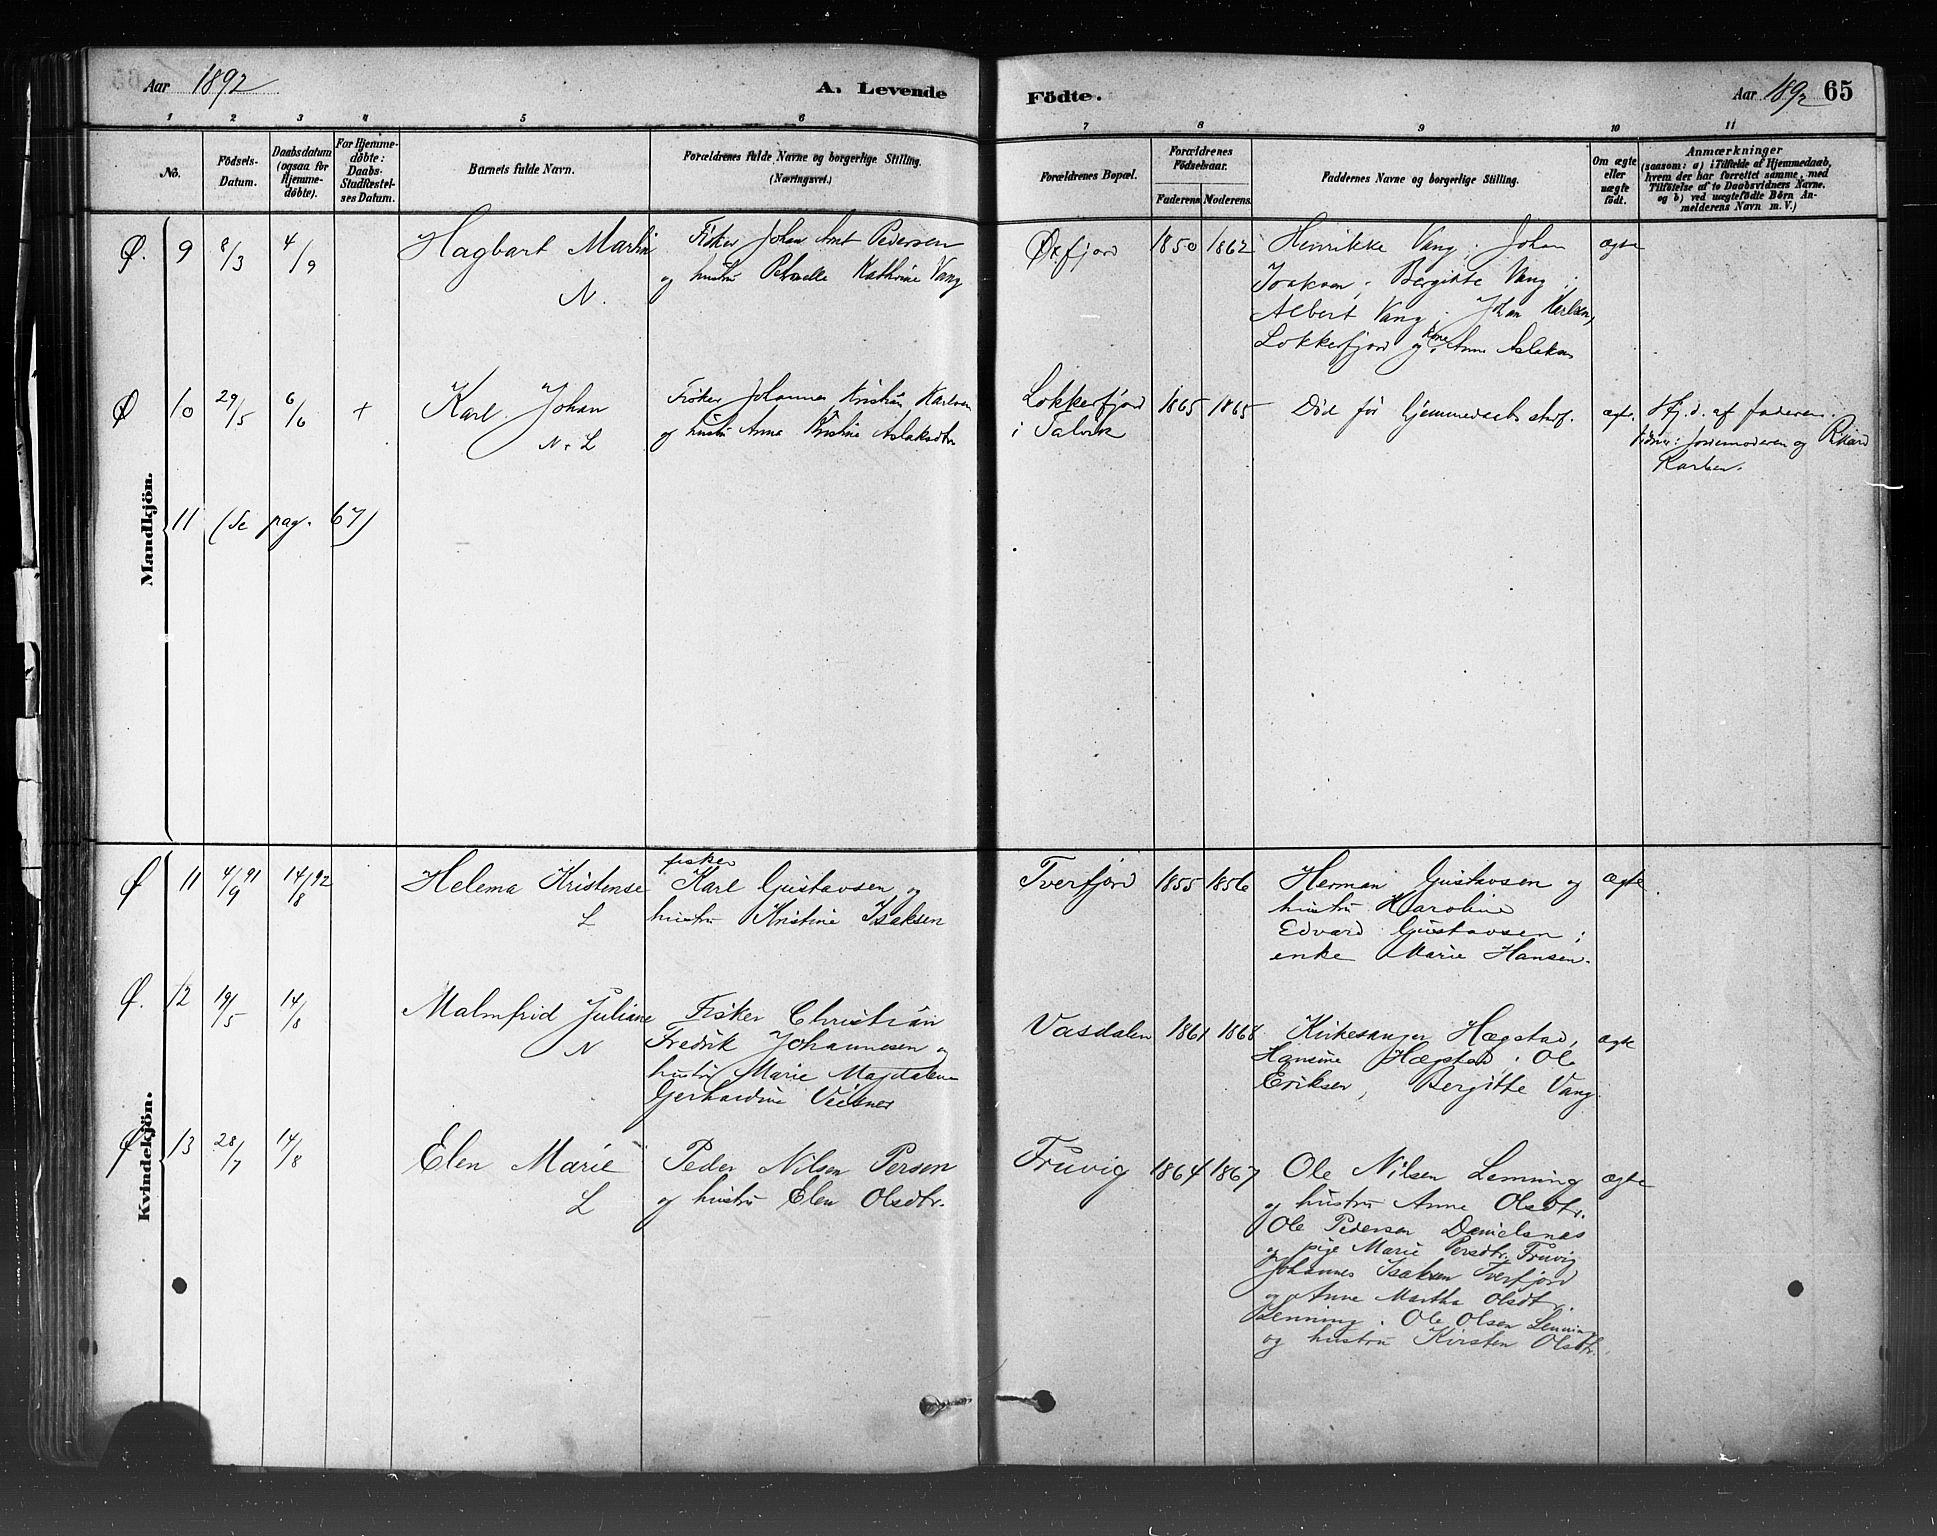 Aar 1892
A. Levende
Födte.
Aar 1892 65
1 2 3 4 5 6 7 8 9 10 11
No.
Födsels-
Datum.
Daabsdatum
(ogsaa for
Hjemme-
döbte).
For Hjemme-
döbte:
Daabs-
Stadfæstel-
ses Datum.
Barnets fulde Navn.
Forældrenes fulde Navne og borgerlige Stilling.
(Næringsvei.)
Forældrenes Bopæl.
Forældrenes
Födselsaar.
Faderens. Moderens.
Faddernes Navne og borgerlige Stilling.
Om ægte
eller
uægte
født.
Anmærkninger
(saasom: a) i Tilfælde af Hjemmedaab,
hvem der har forrettet samme, med
Tilföielse af to Daabsvidners Navne.
og b) ved uægtefödte Börn An-
melderens Navn m. V.)
Mandkjön.
Ø. 9 8/3 4/9
Hagbart Martin
N.
Fisker Johan Arnt Pedersen
og hustru Petrnelle Kathrine Vang
Øxfjord 1850 1862
Henrikke Vang; Johan
Isaksen; Bergitte Vang;
Albert Vang; Johan Karlsen,
Lokkerfjord og kone Anne Aslaksen
ægte
Ø 10 29/5 6/6 +
Karl Johan
N. L
Fisker Johannes Kristian Karlsen
og hustru Anna Kristine Aslaksdtr
Lokkerfjord
i Talvik
1865 1865
Død før hjemmedaabs stadf.
ægte.
Hj. d. af faderen.
Vidner: Jordemoderen og Rikard
Karlsen.
11 (se pag. 67)
Kvindekjön.
Ø 11 4/9 91 14/8 92
Helema Kristense
L
fisker
Karl Gustavsen og
hustru Kristine Isaksen
Tverfjord 1855 1856
Herman Gustavsen og
hustru Karoline
Edvard Gustavsen;
enke Marie Hansen.
ægte
Ø. 12 19/5 14/8
Malmfrid Juliane
N
Fisker Christian
Fredrik Johannesen og
hustru Marie Magdalene
Gerhardine
Vasdalen 1861 1868
Kirkesanger Hægstad,
Hansine Hægstad; Ole
Eriksen, Bergitte Vang.
ægte
Ø 13 28/7 14/8
Elen Marie
L
Peder Nilsen Persen
og hustru Elen Olsdtr.
Fruvig 1864 1867
Ole Nilsen Lemning
og hustru Anne Olsdtr.
Ole Pedersen Danielsnes
og pige Marie Persdtr. Fruvig
Johannes Isaksen Tverfjord
og Anne Martha Olsdtr.
Lemning. Ole Olsen Lemning
og hustru Kirsten Olsdtr.
ægte